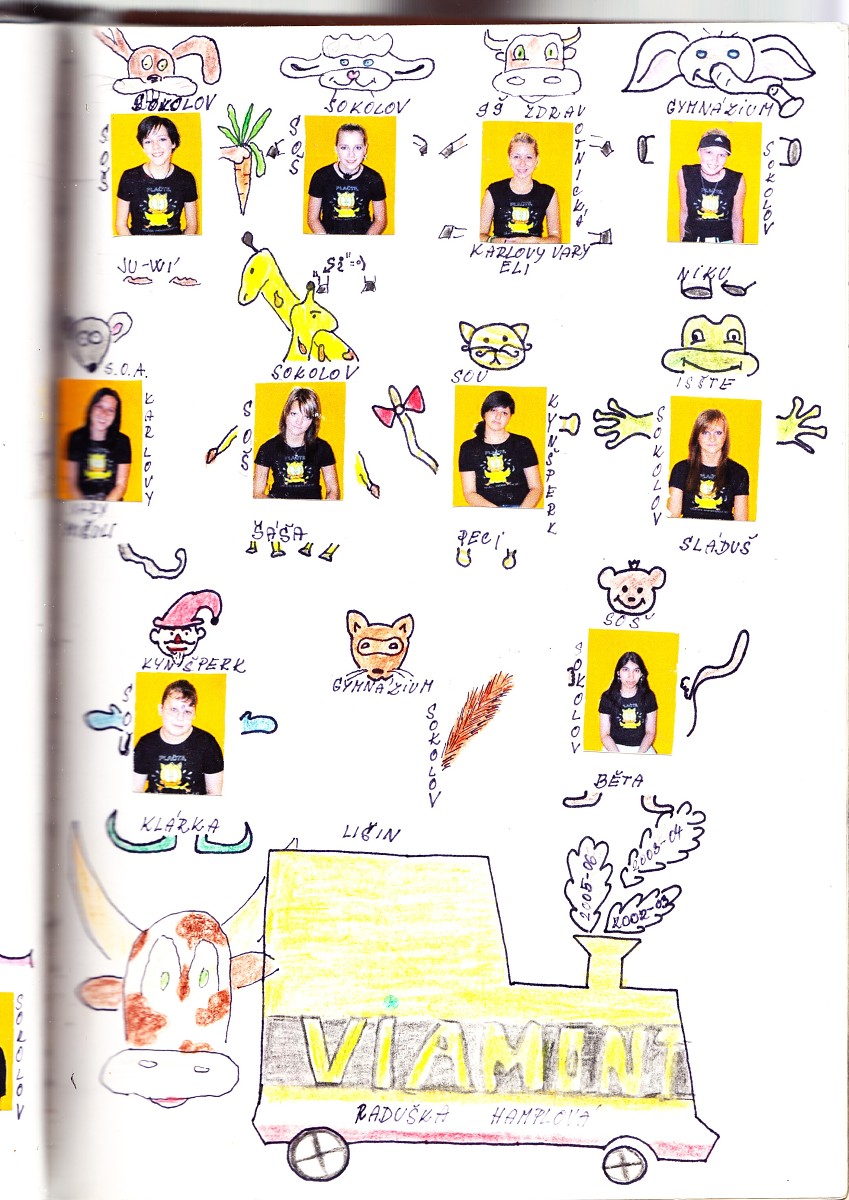 SOKOLOV
SOŠ
JU-WI
SOKOLOV
SOŠ
"Si"=0)
SŠ ZDRAVOTNICKÁ
KARLOVY VARY
ELI
GYMNÁZIUM
SOKOLOV
NIKU
S.O.A.
KARLOVY
SOKOLOV
SOŠ
ŠÁŠA
SOU
KYNŠPERK
PECI
ISŠTE
SOKOLOV
SLÁDUŠ
KYNŠPERK
KLÁRKA
GYMNÁZIUM
SOKOLOV
LIŠIN
SOŠ
SOKOLOV
BĚTA
2005-06
2003-04
2002-03
VIAMONT
RADUŠKA HAMPLOVÁ
SOKOLOV
PLAČTE